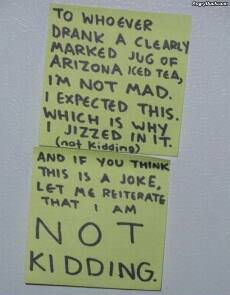 TO WHOEVER
DRANK A CLEARLY
MARKED JUG OF
ARIZONA ICED TEA,
I'M NOT MAD.
I EXPECTED THIS.
WHICH IS WHY
I JIZZED IN IT.
(not kidding)
AND IF YOU THINK
THIS IS A JOKE,
LET ME REITERATE
THAT I AM
NOT
KIDDING.